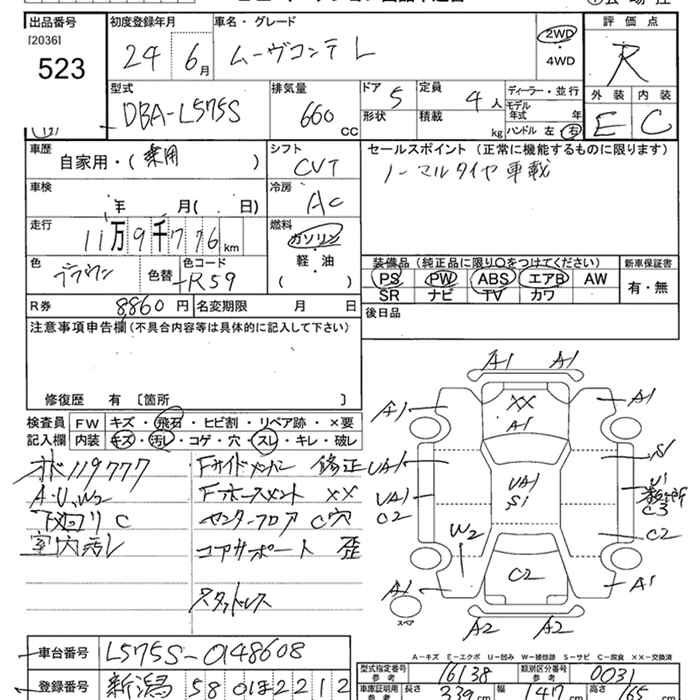 出品番号
[2036]
523
初度登録年月
24 6月
車名・グレード
ムーヴコンテ L
2WD
・
4WD
評価点
R
型式
DBA-L575S
排気量
660 CC
ドア 5
形状
定員 4人
積載 kg
ディーラー・並行
モデル
年式 年
ハンドル 左 右
外装 内装
E C
車歴
自家用・( 乗用 )
シフト
CVT
セールスポイント (正常に機能するものに限ります)
ノーマルタイヤ車載
車検
年 月( 日)
冷房
AC
走行
11万9千776km
燃料
ガソリン
軽・油
( )
色
ブラウン
色替
色コード
R59
装備品 (純正品に限り○をつけてください)
PS PW ABS エアB AW
SR ナビ TV カワ
新車保証書
有・無
R券 8860円
名変期限 月 日
後日品
注意事項申告欄 (不具合内容等は具体的に記入して下さい)
修復歴 有 [箇所 ]
検査員
記入欄
FW キズ・飛石・ヒビ割・リペア跡・×要
内装 キズ・汚レ・コゲ・穴・スレ・キレ・破レ
119777
A・U、W2
下回リ C
室内汚レ
Fサイドメンバー 修正
Fホースメント ××
センターフロア C穴
コアサポート 歪
スタッドレス
A1 A1
A1 ×× A1
A1
UA1 S1
UA1 UA1 U1
C2 S1 C3
W2 C2
C2
A1 A1
スペア
A2 A2
A-キズ E-エクボ U-凹み W-補修跡 S-サビ C-腐食 ××-交換済
車台番号 L575S-0148608
登録番号 新潟 580 ほ 2212
型式指定番号
参考
16138
類別区分番号
参考
0031
車庫証明用
参考
長さ 339cm 幅 147cm 165cm